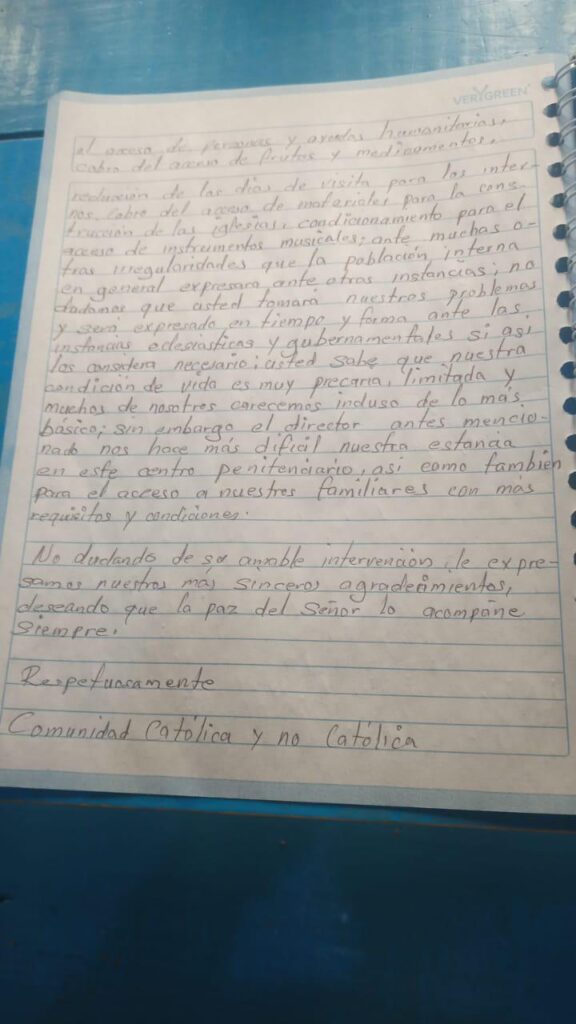 VERYGREEN
el acceso de personas y ayudas humanitarias,
cobro del acceso de frutas y medicamentos,
reducción de los días de visita para los inter-
nos, Cobro del acceso de materiales para la cons-
trucción de las iglesias, condicionamiento para el
acceso de instrumentos musicales; ante muchas o-
tras irregularidades que la población interna
en general expresara ante otras instancias; no
dudamos que usted tomará nuestros problemas
y será expresado en tiempo y forma ante las
instancias eclesiásticas y gubernamentales si así
los considera necesario; usted sabe que nuestra
condición de vida es muy precaria, limitada y
muchos de nosotros carecemos incluso de lo más
básico; sin embargo el director antes mencio-
nado nos hace más difícil nuestra estancia
en este centro penitenciario, así como también
para el acceso a nuestros familiares con más
requisitos y condiciones.
No dudando de su amable intervención, le expre-
samos nuestros más sinceros agradecimientos,
deseando que la paz del Señor lo acompañe
siempre.
Respetuosamente
Comunidad Católica y no Católica